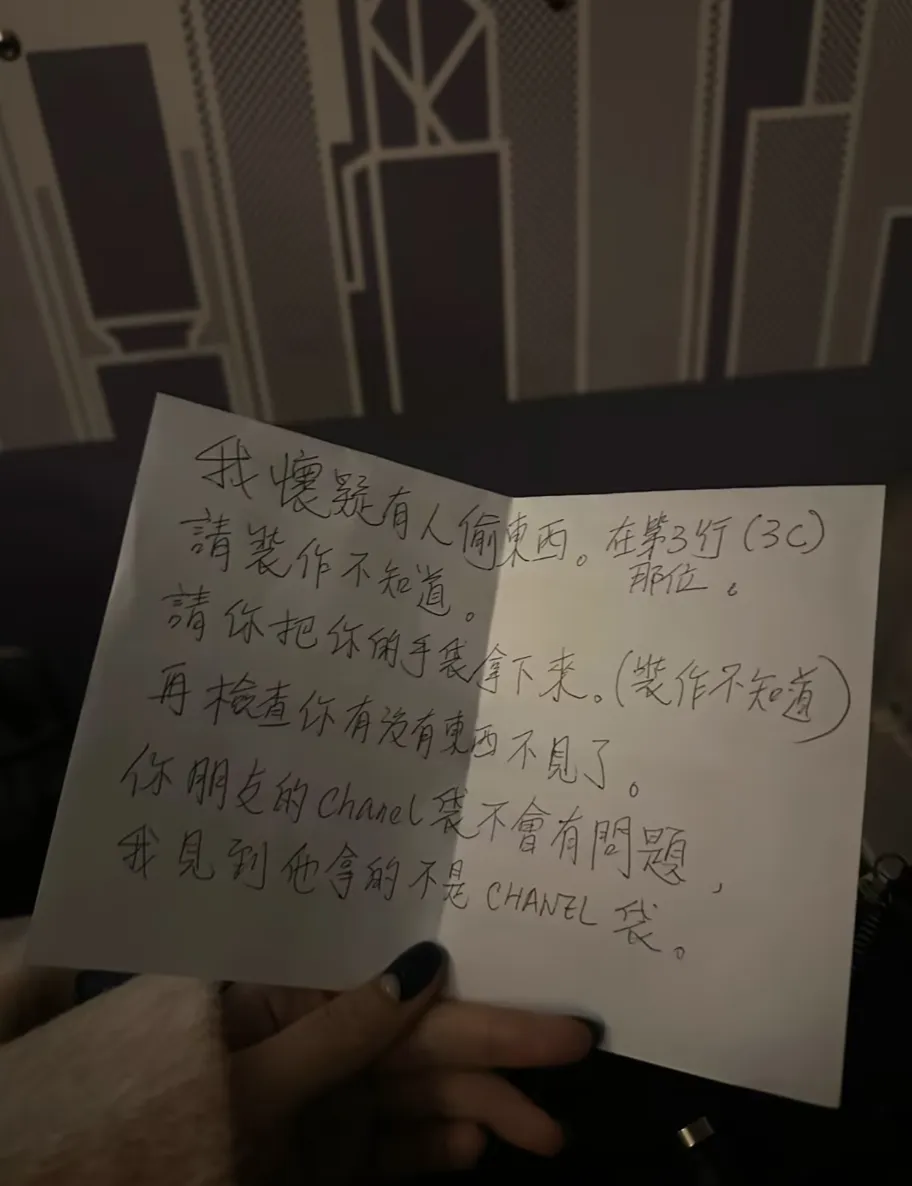 我懷疑有人偷東西。在第3行(3C)
那位。
請裝作不知道。
請你把你的手袋拿下來。(裝作不知道)
再檢查你有沒有東西不見了。
你朋友的Chanel袋不會有問題,
我見到他拿的不是CHANEL袋。